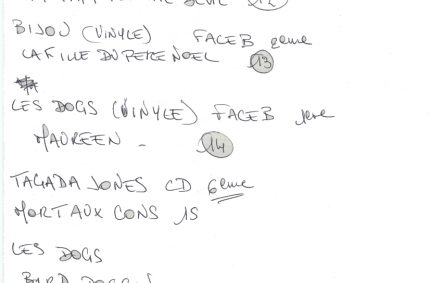 BIJOU (VINYLE) FACE B 2eme
LA FILLE DU PERE NOEL 13
LES DOGS (VINYLE) FACE B 1ere
MAUREEN - 14
TAGADA JONES CD 6eme
MORT AUX CONS 15
LES DOGS